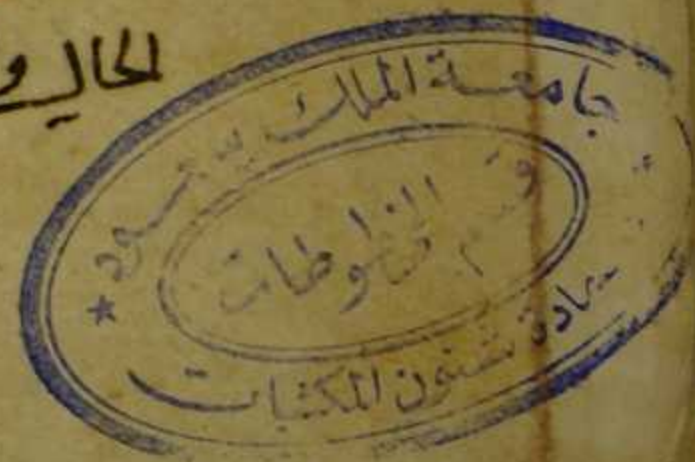 الحالي و
جامعة الملك سعود
قسم المخطوطات
عمادة شئون المكتبات